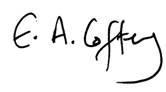 E. A. Coffey